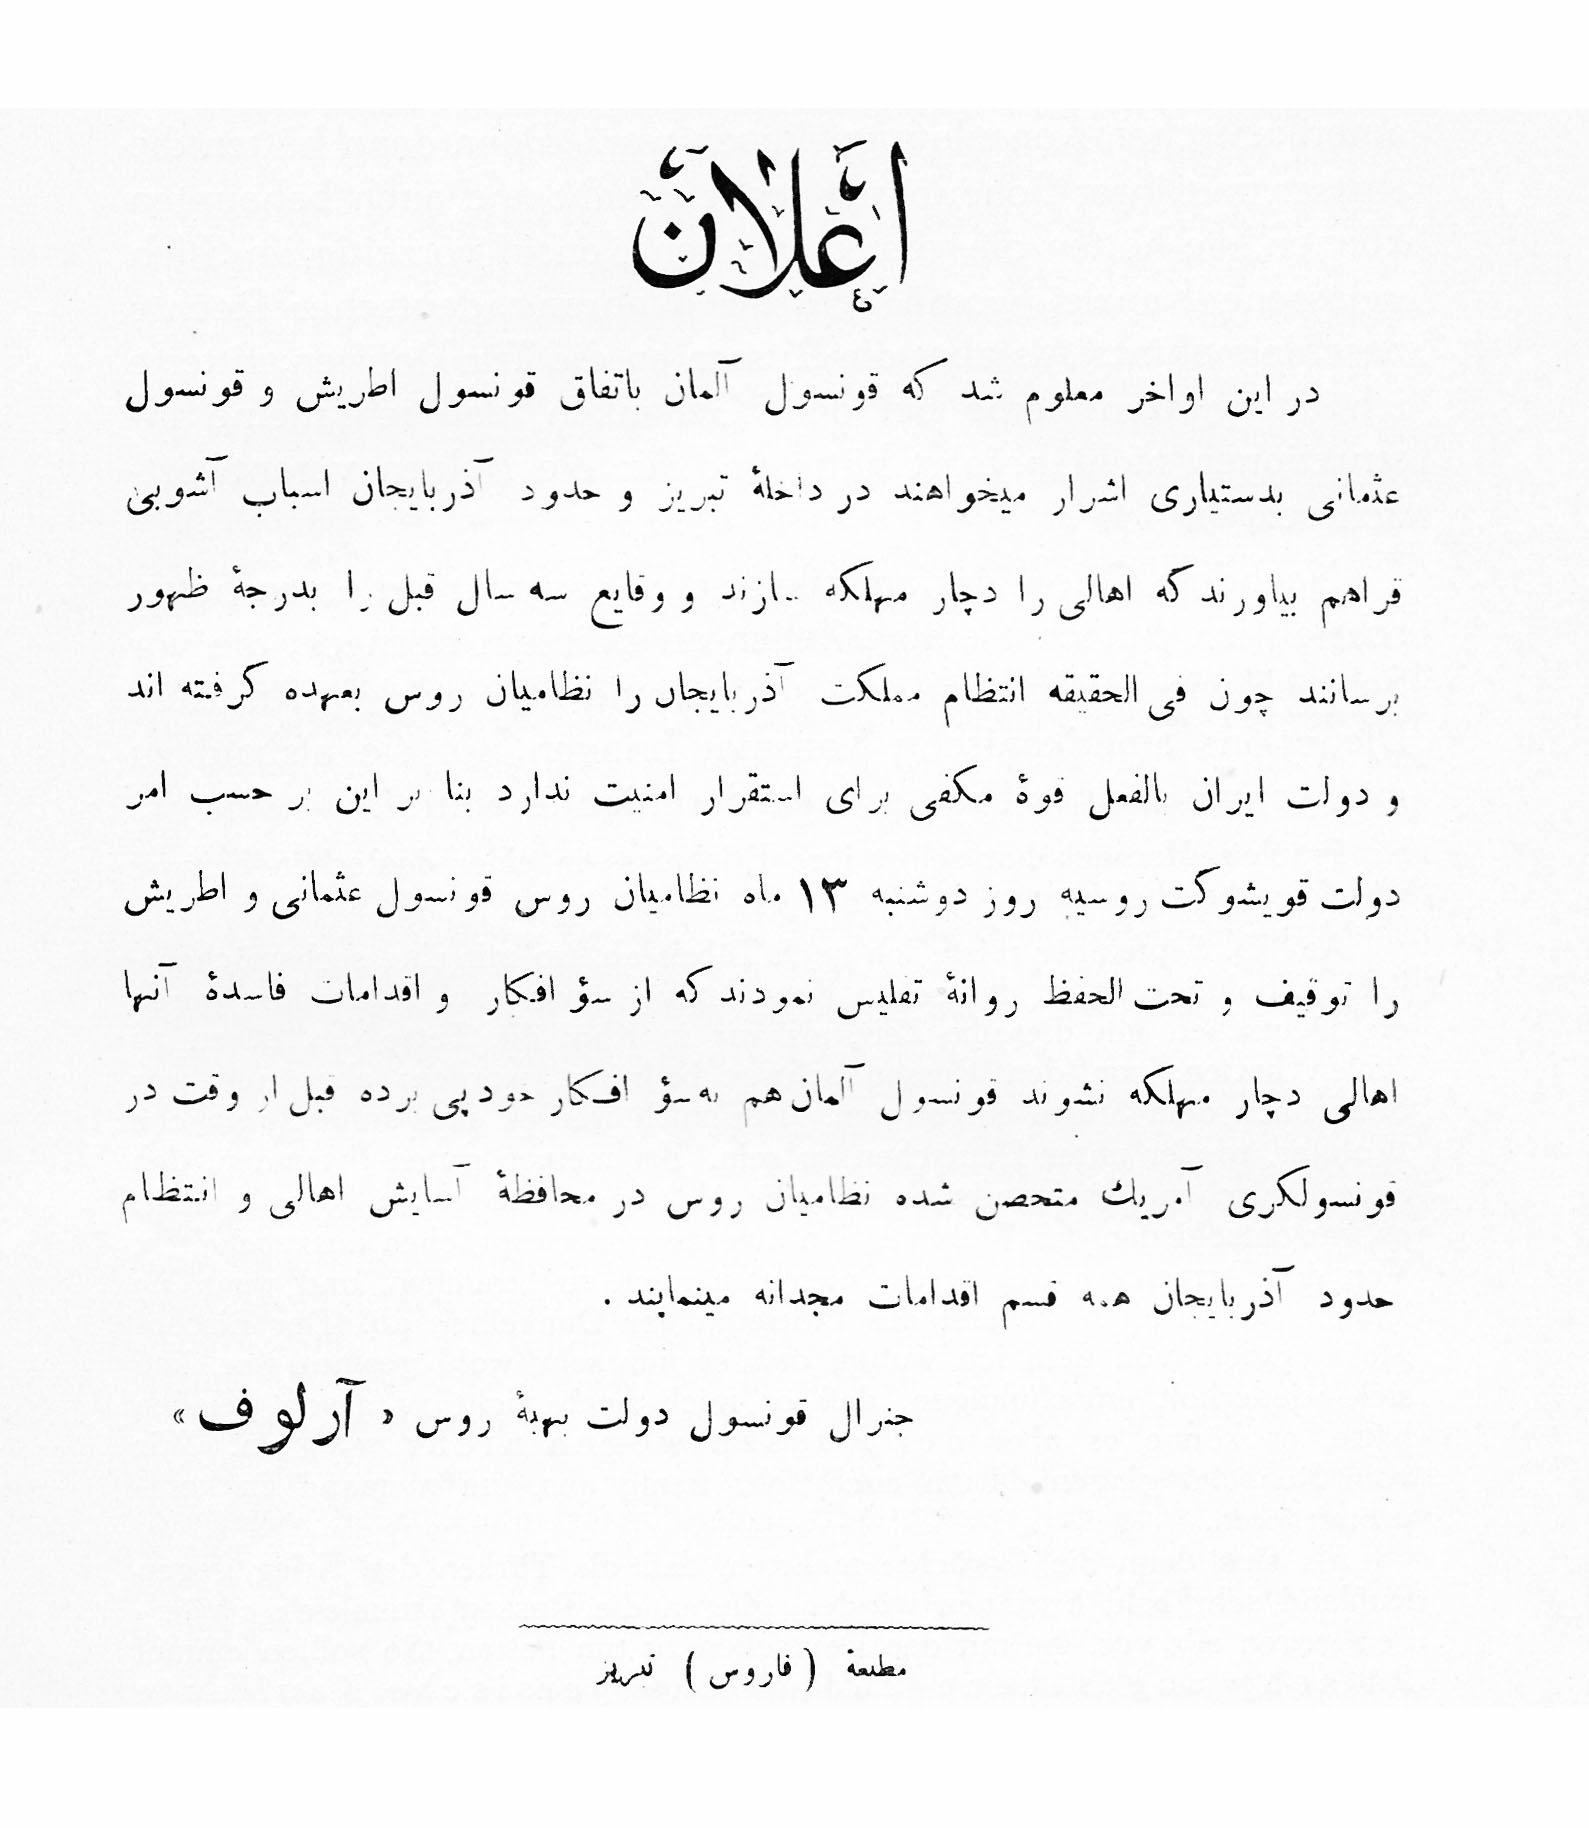 اعلان
در این اواخر معلوم شد که قونسول آلمان باتفاق قونسول اطریش و قونسول
عثمانی بدستیاری اشرار میخواهند در داخلهٔ تبریز و حدود آذربایجان اسباب آشوبی
فراهم بیاورند که اهالی را دچار مهلکه سازند و وقایع سه سال قبل را بدرجهٔ ظهور
برسانند چون فی الحقیقه انتظام مملکت آذربایجان را نظامیان روس بعهده گرفته اند
و دولت ایران بالفعل قوهٔ مکفی برای استقرار امنیت ندارد بنا بر این بر حسب امر
دولت قویشوکت روسیه روز دوشنبه ۱۳ ماه نظامیان روس قونسول عثمانی و اطریش
را توقیف و تحت الحفظ روانهٔ تفلیس نمودند که از سؤ افکار و اقدامات فاسدهٔ آنها
اهالی دچار مهلکه نشوند قونسول آلمان هم به سؤ افکار خود پی برده قبل از وقت در
قونسولکری آمریك متحصن شده نظامیان روس در محافظهٔ آسایش اهالی و انتظام
حدود آذربایجان همه قسم اقدامات مجدانه مینمایند .
جنرال قونسول دولت بهیهٔ روس « آرلوف »
مطبعهٔ ( فاروس ) تبریز